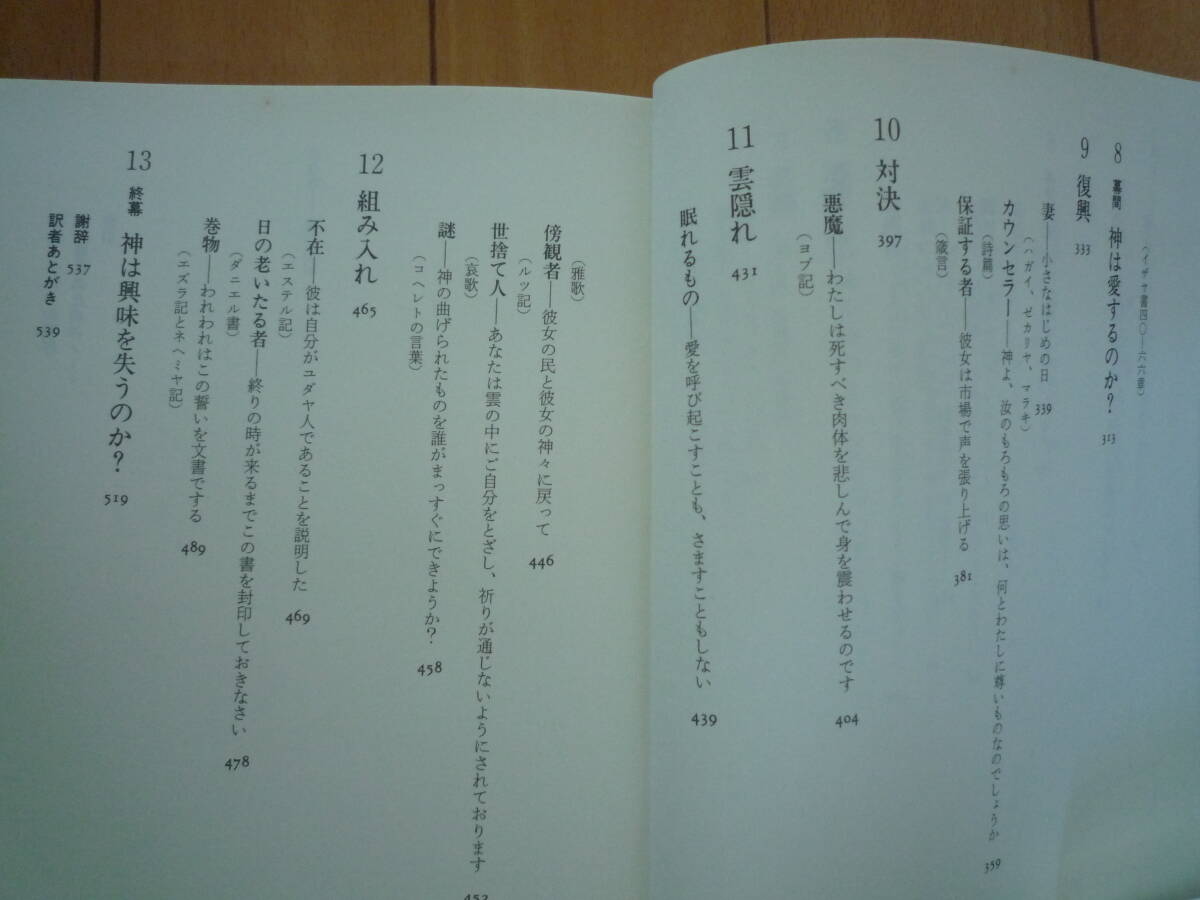 (イザヤ書四〇―六六章)
8 幕間 神は愛するのか? 313
9 復興 333
妻――小さなはじめの日 339
(ハガイ、ゼカリヤ、マラキ)
カウンセラー――神よ、汝のもろもろの思いは、何とわたしに尊いものなのでしょうか 359
(詩篇)
保証する者――彼女は市場で声を張り上げる 381
(箴言)
10 対決 397
悪魔――わたしは死すべき肉体を悲しんで身を震わせるのです 404
(ヨブ記)
11 雲隠れ 431
眠れるもの――愛を呼び起こすことも、さますこともしない 439
(雅歌)
傍観者――彼女の民と彼女の神々に戻って 446
(ルツ記)
世捨て人――あなたは雲の中にご自分をとざし、祈りが通じないようにされております 452
(哀歌)
謎――神の曲げられたものを誰がまっすぐにできようか? 458
(コヘレトの言葉)
12 組み入れ 465
不在――彼は自分がユダヤ人であることを説明した 469
(エステル記)
日の老いたる者――終りの時が来るまでこの書を封印しておきなさい 478
(ダニエル書)
巻物――われわれはこの誓いを文書でする 489
(エズラ記とネヘミヤ記)
13 終幕 神は興味を失うのか? 519
謝辞 537
訳者あとがき 539